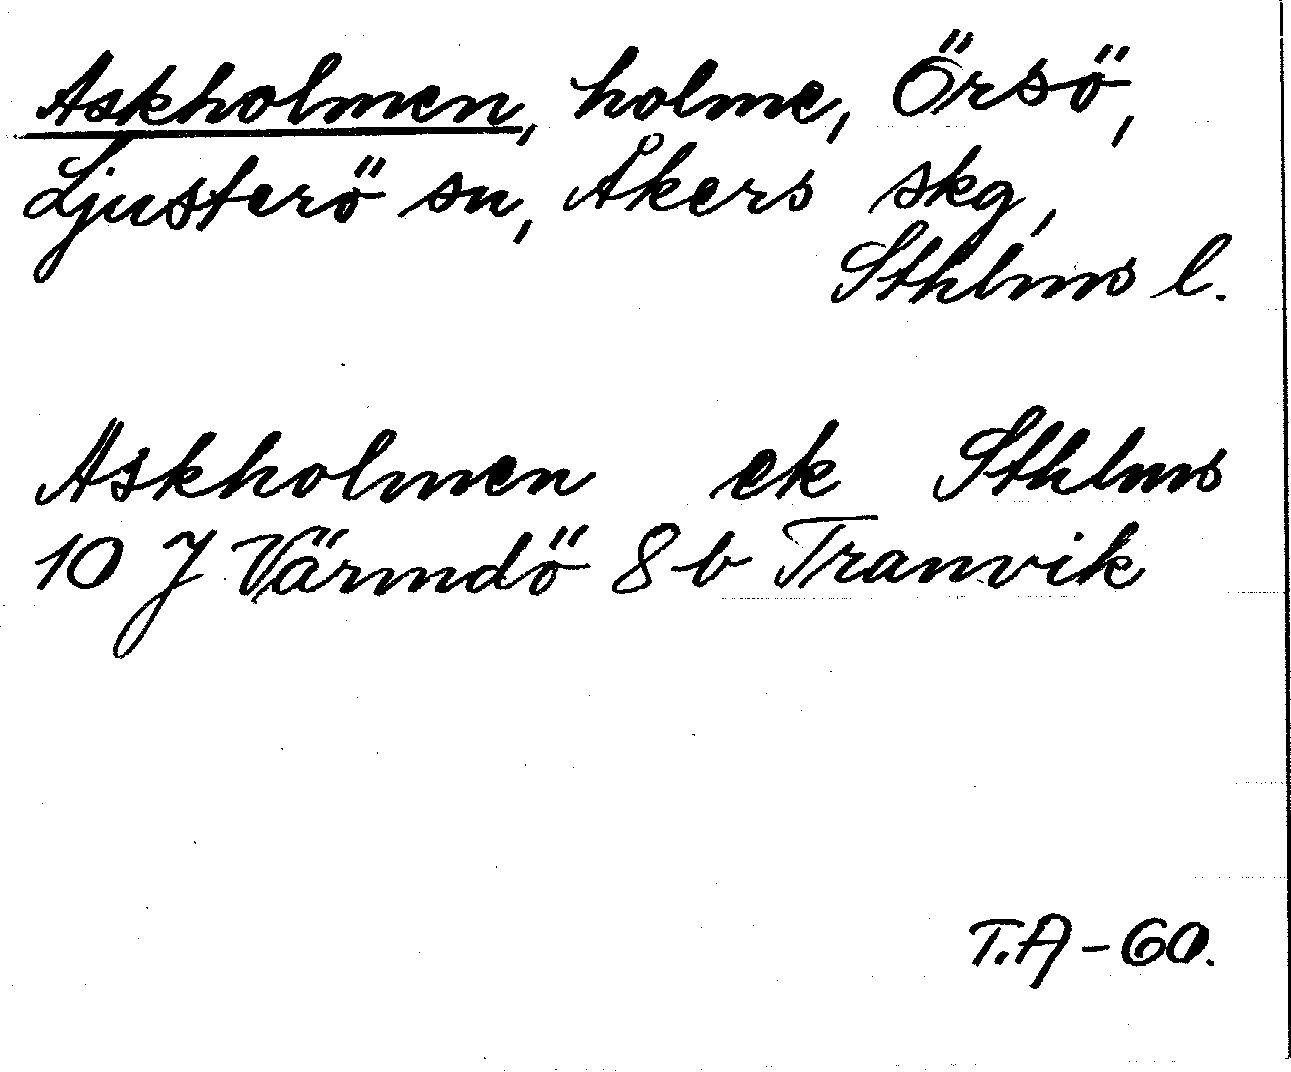 Askholmen, holme, Örsö,
Ljusterö sn, Åkers skg,
Sthlms l.
Askholmen ek Sthlms
10 J Värmdö 8 b Tranvik
T.A-60.